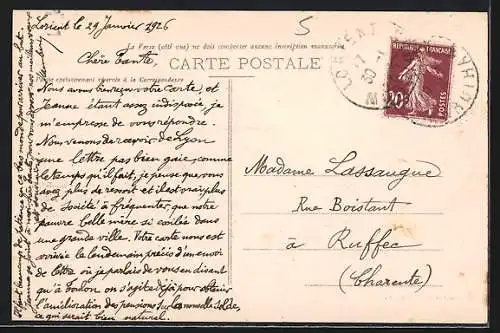 Lorient le 29 Janvier 1926
5
Chère Tante,
Le Verso (côté vue) ne doit comporter aucune inscription manuscrite
CARTE POSTALE
exclusivement réservée à la Correspondance
Nous avons bien reçu votre carte, et
Jeanne étant assez indisposée, je
m'empresse de vous répondre.
Nous venons de recevoir de Lyon
une lettre pas bien gaie, comme
le temps qu'il fait, je pense que vous
avez plus de ressort et il est vrai plus
de société à fréquenter que notre
pauvre belle mère si isolée dans
une grande ville. Votre carte nous est
arrivée le lendemain précis d'un envoi
de lettre où je parlais de vous en disant
qu'à Toulon on s'agite déjà pour obtenir
l'amélioration des pensions sur les nouvelles soldes,
ce qui serait bien naturel.
REPUBLIQUE FRANÇAISE
20c
POSTES
MORBIHAN
Madame Lassaugue
Rue Boistant
à Ruffec
(Charente)